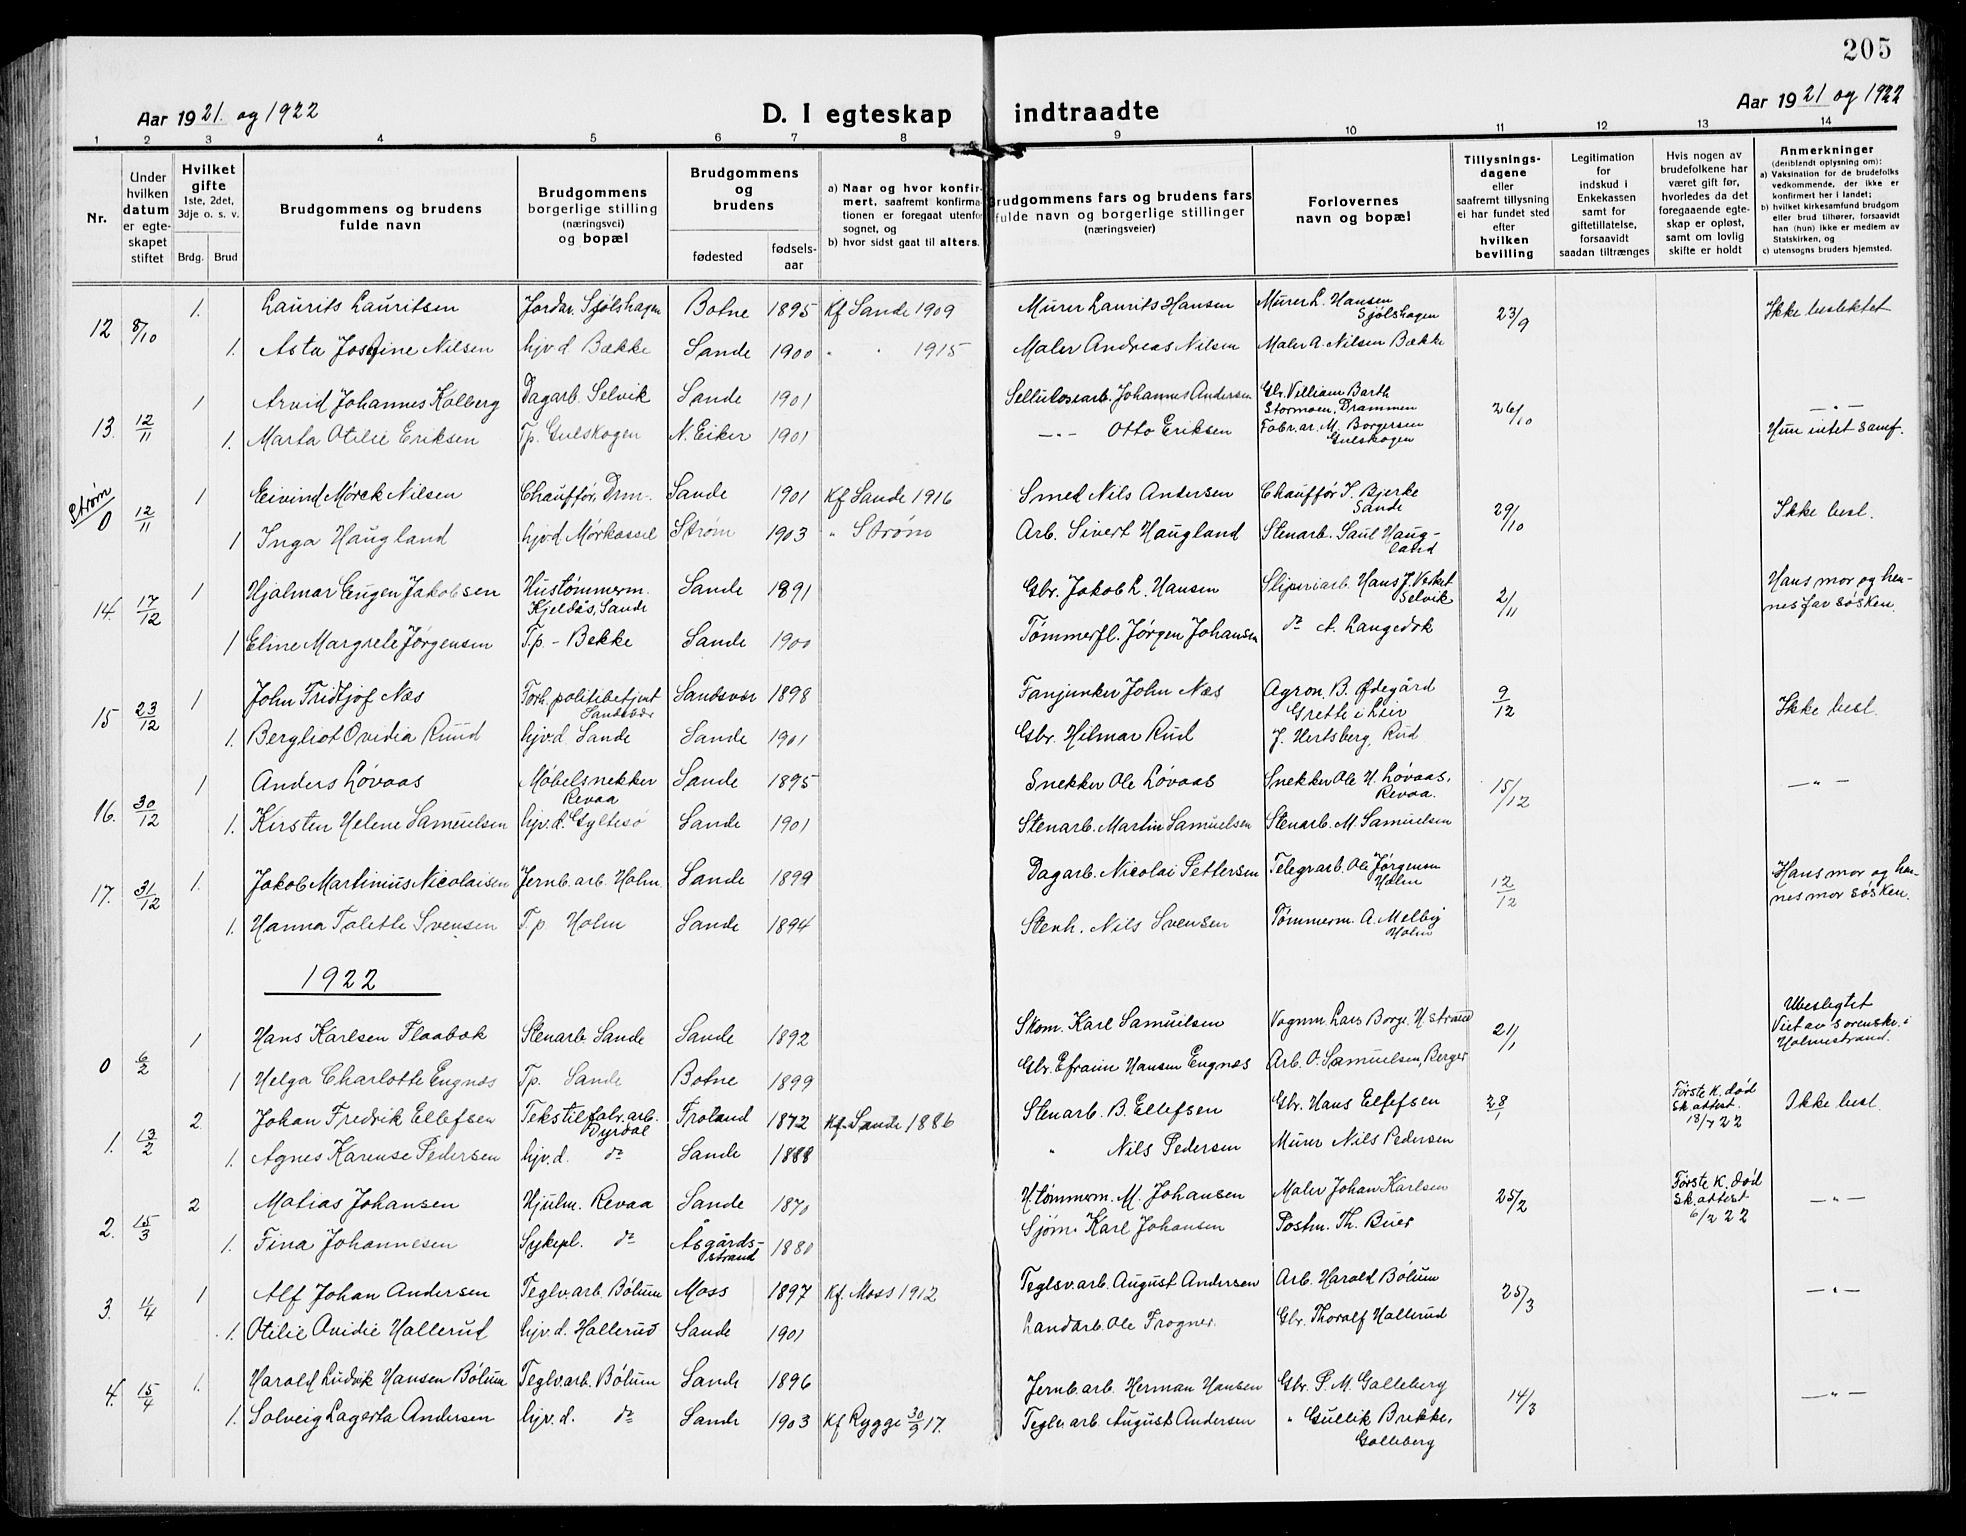 205
Aar 1921. og 1922
D. I egteskap indtraadte
Aar 1921 og 1922
1 2 3 4 5 6 7 8 9 10 11 12 13 14
Nr.
Under hvilken datum er egteskapet stiftet
Hvilket gifte 1ste, 2det, 3dje o. s. v.
Brdg. Brud
Brudgommens og brudens fulde navn
Brudgommens borgerlige stilling (næringsvei) og bopæl
Brudgommens og brudens
fødested fødsels-aar
a) Naar og hvor konfirmert, saafremt konfirmationen er foregaat utenfor sognet, og
b) hvor sidst gaat til alters.
Brudgommens fars og brudens fars fulde navn og borgerlige stillinger (næringsveier)
Forlovernes navn og bopæl
Tillysningsdagene eller saafremt tillysning ei har fundet sted efter hvilken bevilling
Legitimation for indskud i Enkekassen samt for giftetillatelse, forsaavidt saadan tiltrænges
Hvis nogen av brudefolkene har været gift før, hvorledes da det foregaaende egteskap er opløst, samt om lovlig skifte er holdt
Anmerkninger (deriblandt oplysning om):
a) Vaksination for de brudefolks vedkommende, der ikke er konfirmert her i landet;
b) hvilket kirkesamfund brudgom eller brud tilhører, forsaavidt han (hun) ikke er medlem av Statskirken, og
c) utensogns bruders hjemsted.
12 8/10 1. Laurits Lauritsen Jordar. Sjølshagen Botne 1895 Kf Sande 1909 Murer Laurits Hansen Murer L. Hansen Sjølshagen 23/9 Ikke beslektet
1. Asta Josefine Nilsen hjv.d Bække Sande 1900 " " 1915 Maler Andreas Nilsen Maler A. Nilsen Bække
13. 12/11 1 Arvid Johannes Kolberg Dagarb. Selvik Sande 1901 Sellulosearb. Johannes Andersen Gbr. Villiam Barth Stormoen, Drammen 26/10 — " —
1. Marta Otilie Eriksen Tp. Gulskogen N. Eiker 1901 — " — Otto Eriksen Fabr. ar. M. Borgersen Gulskogen Hun intet samf.
Strøm
0 12/11 1 Eivind Mørck Nilsen Chauffør, Drm. Sande 1901 Kf Sande 1916 Smed Nils Andersen Chauffør T. Bjerke Sande 29/10 Ikke besl.
1 Inga Haugland hjv.d Mørkassel Strøm 1903 " Strøm Arb. Sivert Haugland Stenarb. Saul Haugland
14. 17/12 1 Hjalmar Eugen Jakobsen Hustømmerm. Kjeldås, Sande Sande 1891 Gbr. Jakob L. Hansen Sliperiarb. Hans J. Verket Selvik 2/11 Hans mor og hennes far søsken.
1 Elme Margrele Jørgensen T.p - Bekke Sande 1900 Tømmerfl. Jørgen Johansen do A. Langedok
15 23/12 1 John Fridtjof Næs Forh. politibetjent Sandsvær Sandsvær 1898 Fanjunker John Næs Agron. B. Ødegård Grette i Lier 9/12 Ikke besl.
1. Bergliot Ovidia Ruud hjv.d Sande Sande 1901 Gbr. Hilmar Rud J. Hertsberg, Rud
16. 30/12 1 Anders Løvaas Møbelsnekker Revaa Sande 1895 Snekker Ole Løvaas Snekker Ole H. Løvaas, Revaa. 15/12 — " —
1. Kirsten Helene Samuelsen hjv.d. Gyltesø Sande 1901 Stenarb. Martin Samuelsen Stenarb. M. Samuelsen
17. 31/12 1. Jakob Martinius Nicolaisen Jernb. arb. Holm Sande 1899 Dagarb. Nicolai Pettersen Telegrarb. Ole Jørgensen Holm 12/12 Hans mor og hennes mor søsken.
1. Hanna Talette Svensen T.p. Holm Sande 1894 Stenh. Nils Svensen Tømmerm. A. Melby Holm
1922
0 6/2 1 Hans Karlsen Flaabæk Stenarb. Sande Sande 1892 Skom. Karl Samuelsen Vognm. Lars Borge, Hstrand 21/1 Ubeslegtet Viet av sorenskr. i Holmestrand.
1 Helga Charlotte Engnes Tp. Sande Botne 1899 Gbr. Efraim Hansen Engnæs Arb. O. Samuelsen, Berger
1. 13/2 2 Johan Fredrik Ellefsen Tekstilfabr. arb. Dyrdal Froland 1872 Kf. Sande 1886 Stenarb. B. Ellefsen Gbr. Hans Ellefsen 28/1 Første K. død Sk. attest. 13/1 22 Ikke besl.
1. Agnes Karense Pedersen hjv.d. do Sande 1888 " Nils Pedersen Murer Nils Pedersen
2. 15/3 2 Matias Johansen Hjulm. Revaa Sande 1870 H.tømmerm. M. Johansen Maler Johan Karlsen 25/2 Første K. død Sk. attest 6/2 22 — " —
1. Fina Johannesen Sykepl. do Åsgårdsstrand 1880 Sjøm. Karl Johansen Postm. Th. Buer
3. 11/4 1 Alf Johan Andersen Teglv.arb. Bølum Moss 1897 Kf. Moss 1912 Teglsv.arb. August Andersen Arb. Harald Bølum 25/3 — " —
1. Otilie Ovidie Hallerud hjv.d. Hallerud Sande 1901 Landarb. Ole Frogner. Gbr. Thoralf Hallerud
4. 15/4 1. Harald Ludvik Hansen Bølum Teglv.arb. Bølum Sande 1896 Jernb.arb. Herman Hansen Gbr. P. M. Galleberg 14/3 — " —
1. Solveig Lagerta Andersen hjv.d. do Sande 1903 Kf Rygge 30/9 17. Teglv.arb. August Andersen " Gullik Brekke, Galleberg